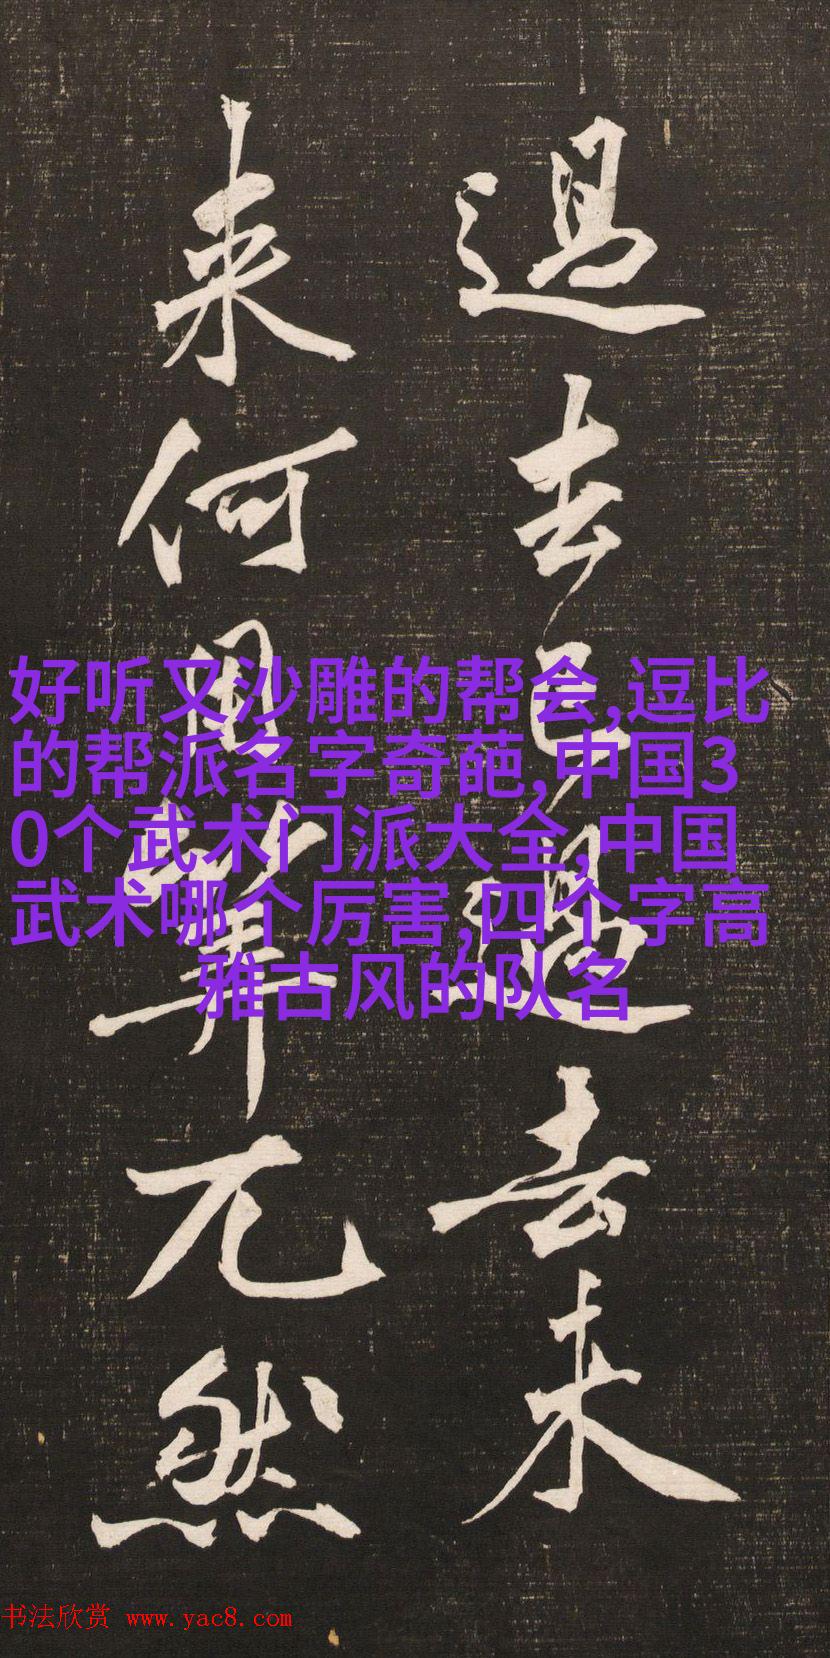 過去已過去未
来何用算兀然
好听又沙雕的帮会,逗比
的帮派名字奇葩,中国3
0个武术门派大全,中国
武术哪个厉害,四个字高
雅古风的队名
书法欣赏 www.yac8.com